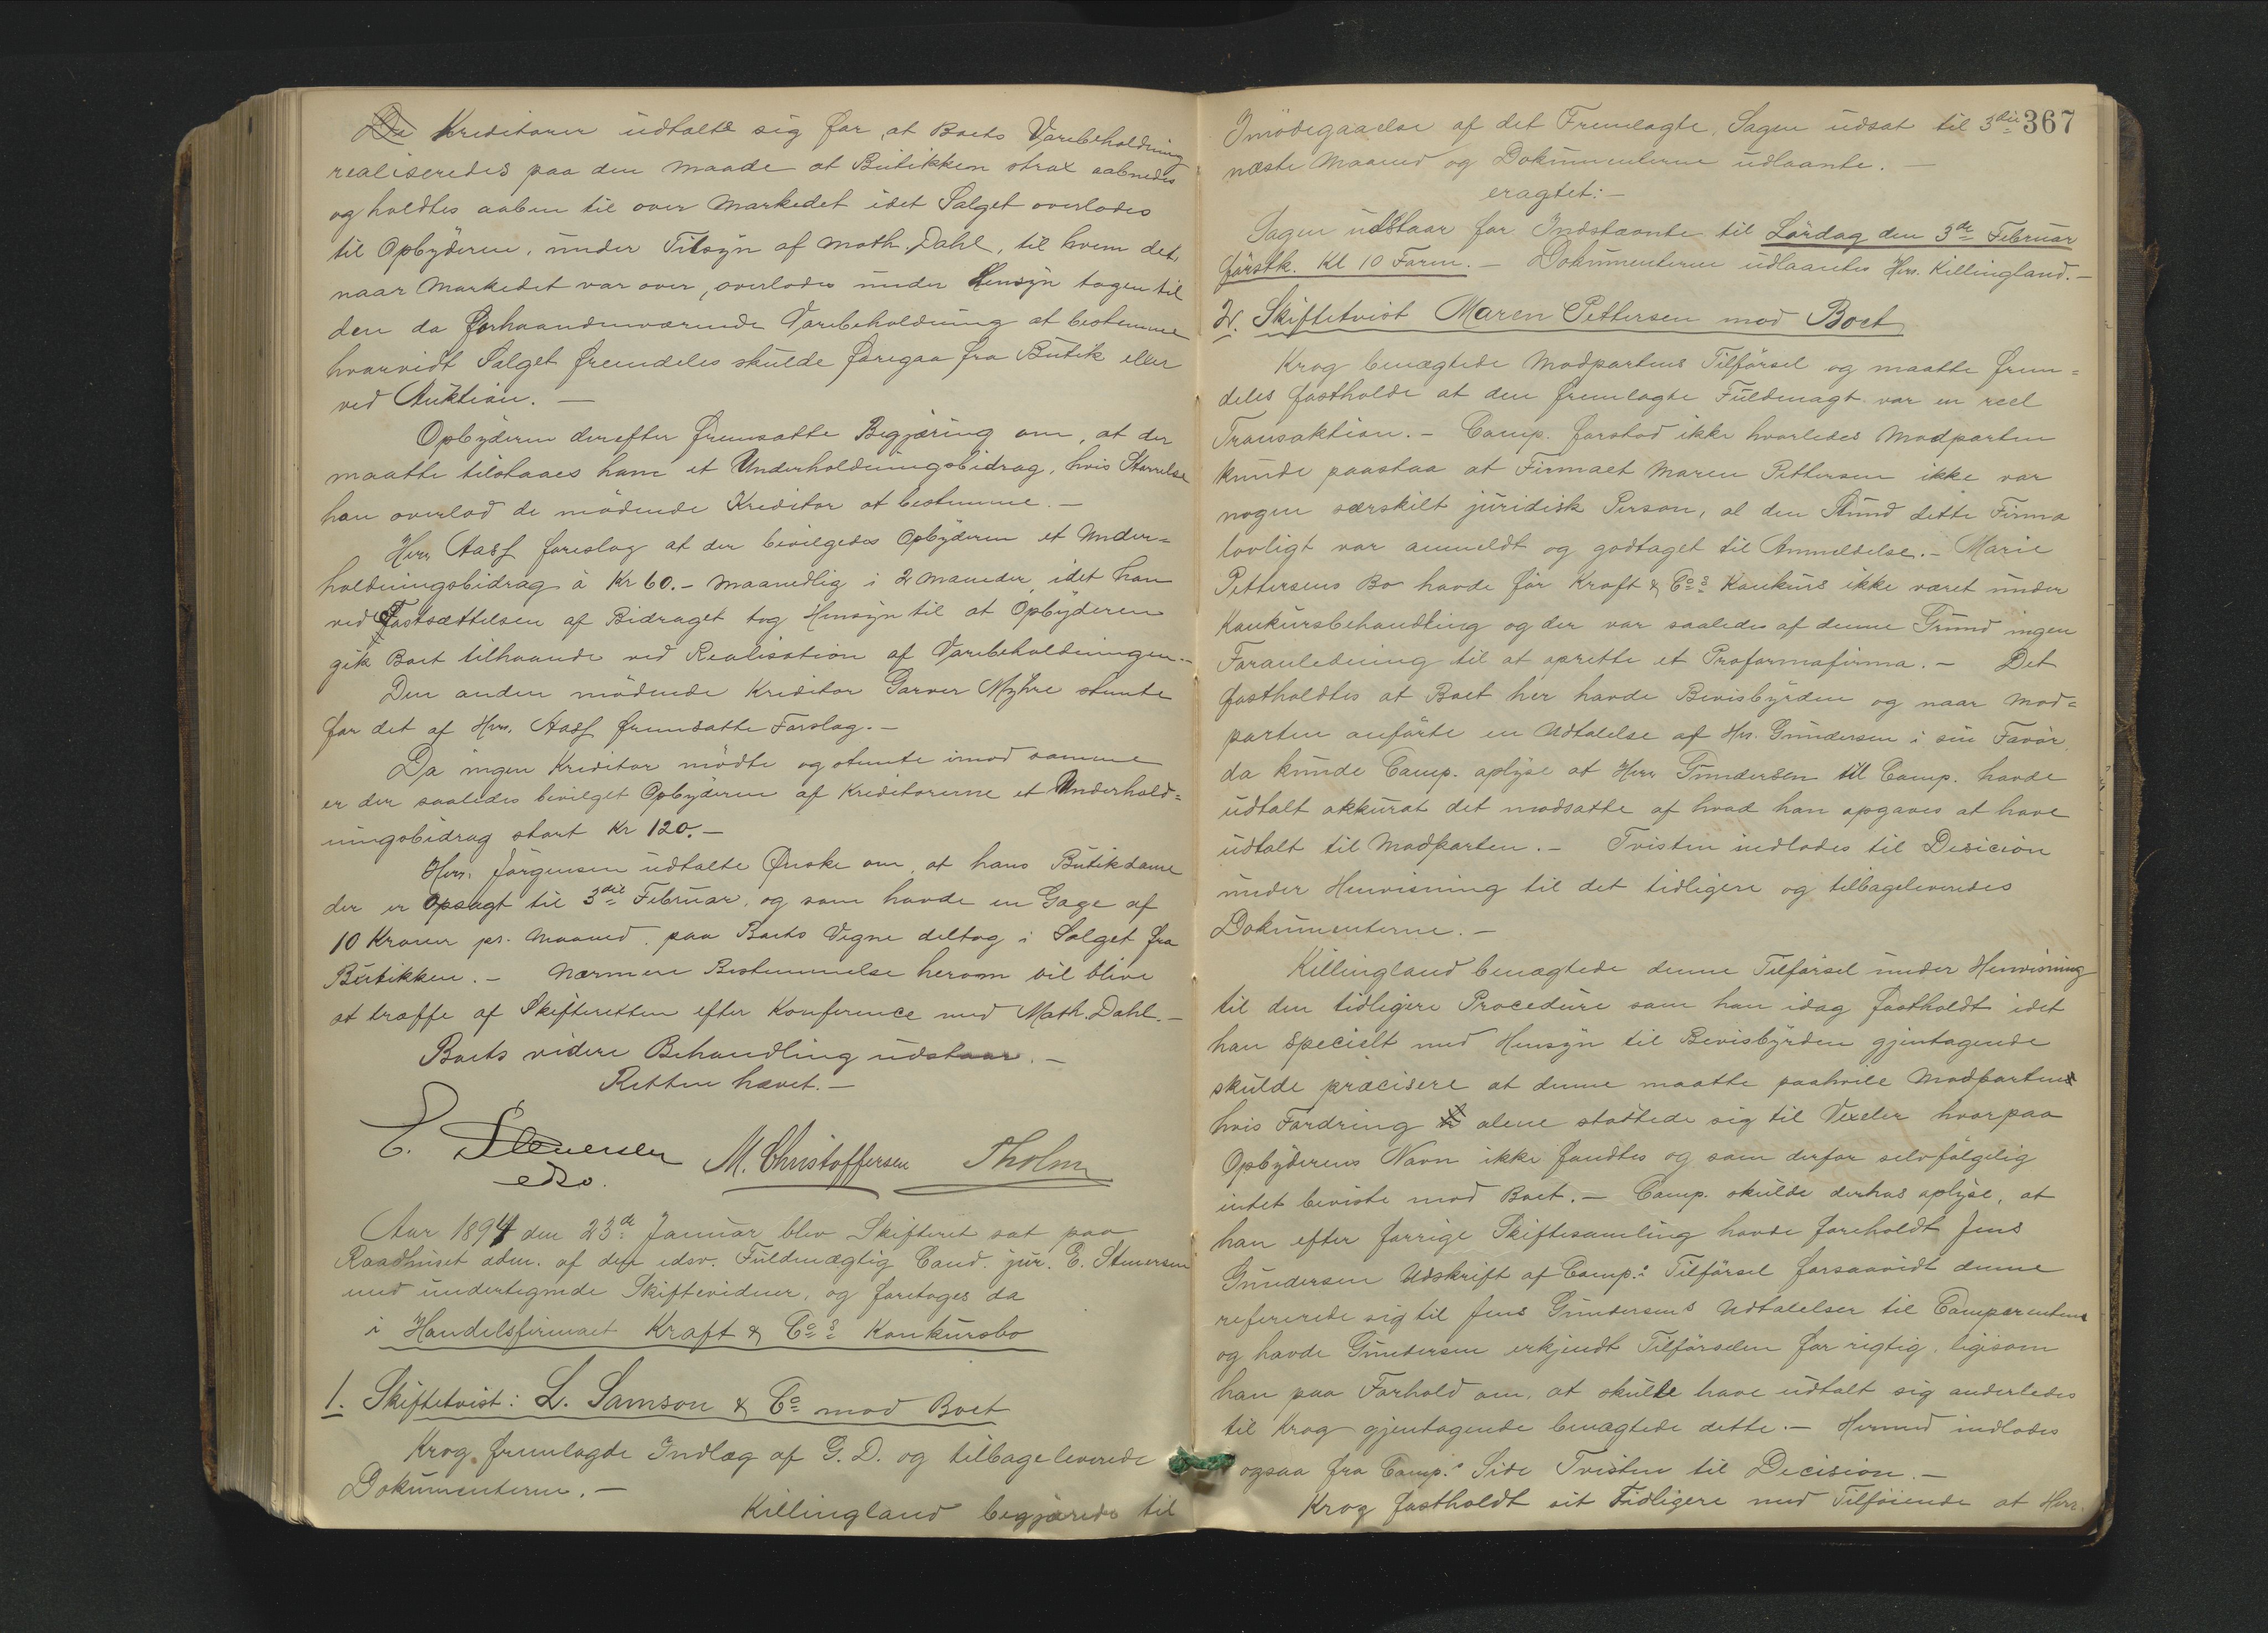 De Kreditorer udtalte sig for, at Boets Varebeholdning
realiseredes paa den Maade at Butikken strax aabnedes
og holdtes aaben til over Markedet idet Salget overlodes
til Opbyderen, under Tilsyn af Math. Dahl, til hvem det,
naar Markedet var over, overlodes under Hensyn tagen til
den da forhaandenværende Varebeholdning at bestemme
hvorvidt Salget fremdeles skulde foregaa fra Butik eller
ved Auktion. —
Opbyderen derefter fremsatte Begjæring om, at der
maatte tilstaaes ham et Underholdningsbidrag, hvis Størrelse
han overlod de mødende Kreditor at bestemme. —
Herr Aass foreslog at der bevilgedes Opbyderen et Under=
holdningsbidrag à Kr 60.- maanedlig i 2 Maneder, idet han
ved Fastsættelsen af Bidraget tog Hensyn til at Opbyderen
gik Boet tilhaande ved Realisation af Varebeholdningen. —
Den anden mødende Kreditor Garver Myhre stemte
for det af Hrr. Aass fremsatte Forslag. —
Da ingen Kreditor mødte og stemte imod samme
er der saaledes bevilget Opbyderen af Kreditorerne et Underhold=
ningsbidrag stort Kr 120. —
Herr. Jörgensen udtalte Ønske om, at hans Butikdame
der er opsagt til 3die Februar, og som havde en Gage af
10 Kroner pr. Maaned, paa Boets Vegne deltog i Salget fra
Butikken. — Nærmere Bestemmelse herom vil blive
at træffe af Skifteretten efter Konference med Math. Dahl. —
Boets videre Behandling udstaar. —
Retten hævet. —
E. Stenersen M. Christoffersen Tholm
edsv.
Aar 1894 den 23de Januar blev Skifteret sat paa
Raadhuset adm. af den edsv. Fuldmægtig Cand. jur. E. Stenersen
med undertegnede Skiftevidner, og foretoges da
i Handelsfirmaet Kraft & Co's Konkursbo
1. Skiftetvist: L. Samson & Co mod Boet
Krog fremlagde Indlæg af G. D. og tilbageleverede
Dokumenterne. —
Killingland begjærede til
367
Imödegaaelse af det Fremlagte, Sagen udsat til 3die
næste Maaned og Dokumenterne udlaante. —
eragtet: —
Sagen udstaar for Indstævnte til Lördag den 3de Februar
förstk. Kl 10 Form. — Dokumenterne udlaantes Hrr. Killingland. —
2. Skiftetvist Maren Pettersen mod Boet
Krog benægtede Modpartens Tilförsel og maatte frem=
deles fastholde at den fremlagte Fuldmagt var en reel
Transaktion. — Comp. forstod ikke hvorledes Modparten
kunde paastaa at Firmaet Maren Pettersen ikke var
nogen særskilt juridisk Person, al den Stund dette Firma
lovligt var anmeldt og godtaget til Anmeldelse. — Marie
Pettersens Bo havde för Kraft & Co's Konkurs ikke været under
Konkursbehandling og der var saaledes af denne Grund ingen
Foranledning til at oprette et Proformafirma. — Det
fastholdtes at Boet her havde Bevisbyrden og naar Mod=
parten anförte en Udtalelse af Hr. Gundersen i sin Favör,
da kunde Comp. oplyse at Herr Gundersen til Comp. havde
udtalt akkurat det modsatte af hvad han opgaves at have
udtalt til Modparten. — Tvisten indlodes til Desicion
under Henvisning til det tidligere og tilbageleveredes
Dokumenterne. —
Killingland benægtede denne Tilförsel under Henvisning
til den tidligere Procedure som han idag fastholdt idet
han specielt med Hensyn til Bevisbyrden gjentagende
skulde præcisere at denne maatte paahvile Modparten
hvis Fordring alene støttede sig til Vexler hvorpaa
Opbyderens Navn ikke fandtes og som derfor selvfölgelig
intet beviste mod Boet. — Comp. skulde derhos oplyse, at
han efter forrige Skiftesamling havde foreholdt Jens
Gundersen Udskrift af Comp.s Tilförsel forsaavidt denne
refererede sig til Jens Gundersens Udtalelser til Comparenten
og havde Gundersen erkjendt Tilförselen for rigtig, ligesom
han paa Forhold om, at skulle have udtalt sig anderledes
til Krog gjentagende benægtede dette. — Hermed indlodes
ogsaa fra Comp.s Side Tvisten til Decision. —
Krog fastholdt sit Tidligere med Tilföiende at Herr.